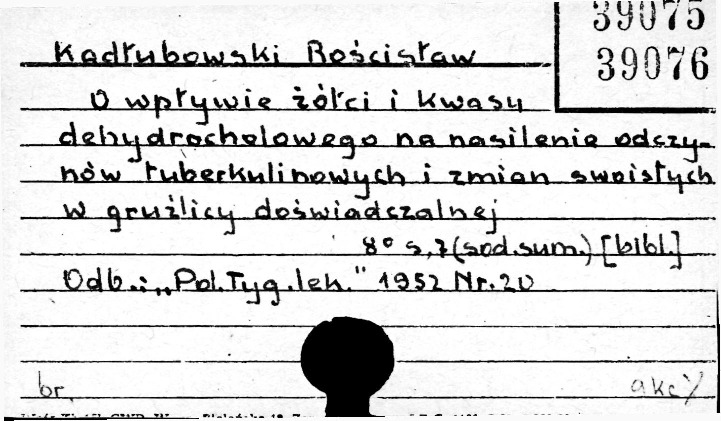 39075
39076
Kadłubowski Rościsław
O wpływie żółci i kwasu
dehydrocholowego na nasilenie odczy-
nów tuberkulinowych i zmian swoistych
w gruźlicy doświadczalnej
8° s,7 (sod.sum.) [bibl.]
Odb.: „Pol.Tyg.lek." 1952 Nr.20
br.
akc